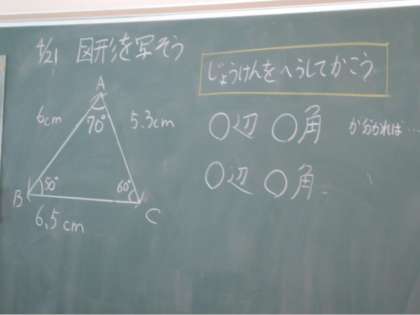 4/21 図形を写そう
じょうけんをへらしてかこう
A
6cm 70° 5.3cm
○辺 ○角 が分かれば…
B 50° 60° C
6.5cm
○辺 ○角